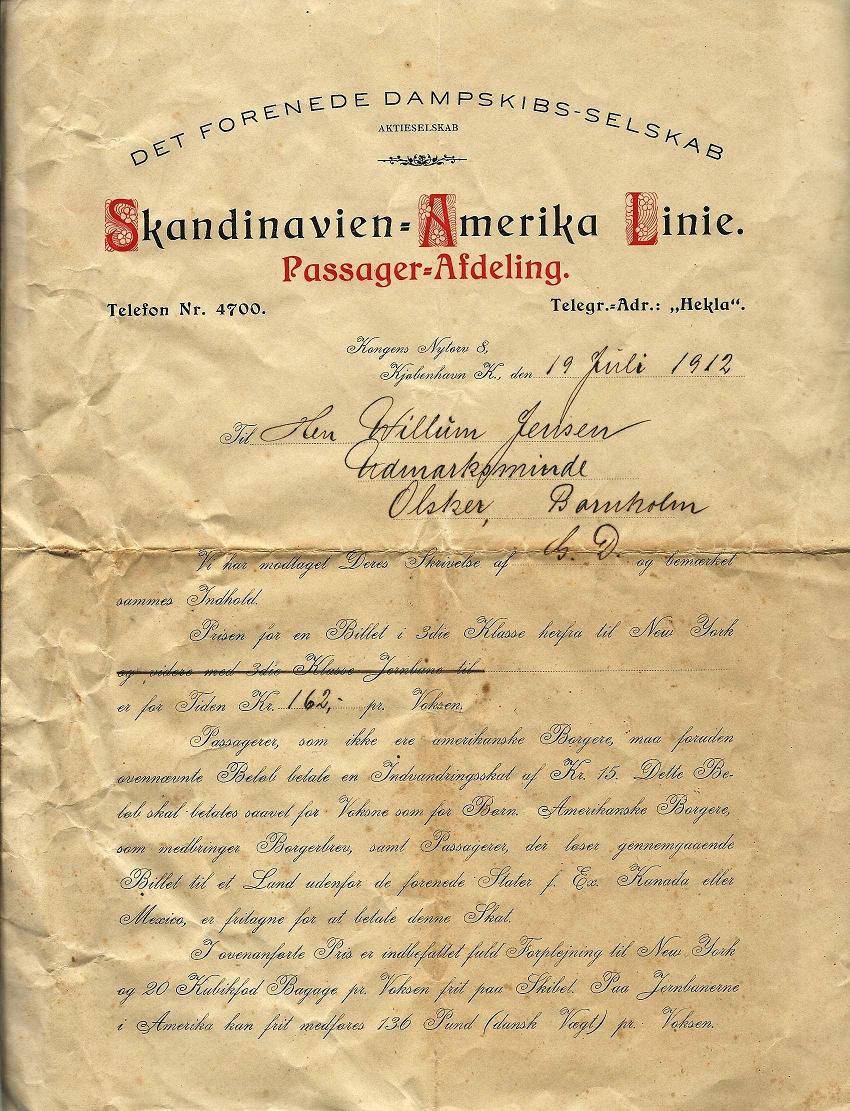 DET FORENEDE DAMPSKIBS-SELSKAB
AKTIESELSKAB
Skandinavien-Amerika Linie.
Passager-Afdeling.
Telefon Nr. 4700. Telegr.-Adr.: „Hekla“.
Kongens Nytorv 8,
Kjøbenhavn K., den 19 Juli 1912
Til Herr Willum Jensen
Udmarksminde
Olsker, Bornholm
Vi har modtaget Deres Skrivelse af G. D. og bemærket
sammes Indhold.
Prisen for en Billet i 3die Klasse herfra til New York
og videre med 3die Klasse Jernbane til
er for Tiden Kr. 162,- pr. Voksen.
Passagerer, som ikke ere amerikanske Borgere, maa foruden
ovennævnte Beløb betale en Indvandringsskat af Kr. 15. Dette Be-
løb skal betales saavel for Voksne som for Børn. Amerikanske Borgere,
som medbringer Borgerbrev, samt Passagerer, der løser gennemgaaende
Billet til et Land udenfor de forenede Stater f. Ex. Kanada eller
Mexico, er fritagne for at betale denne Skat.
I ovenanførte Pris er indbefattet fuld Forplejning til New York
og 20 Kubikfod Bagage pr. Voksen frit paa Skibet. Paa Jernbanerne
i Amerika kan frit medføres 136 Pund (dansk Vægt) pr. Voksen.